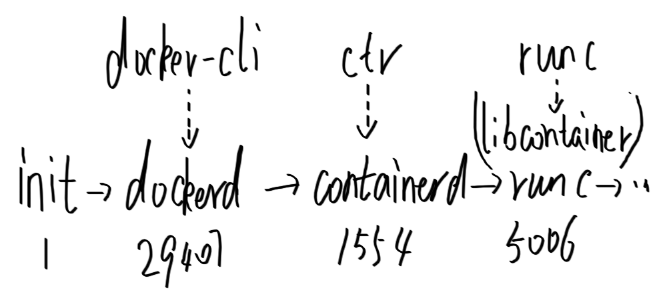 docker-cli ctr runc
(libcontainer)
init → dockerd → containerd → runc → ..
1 29407 1554 5006